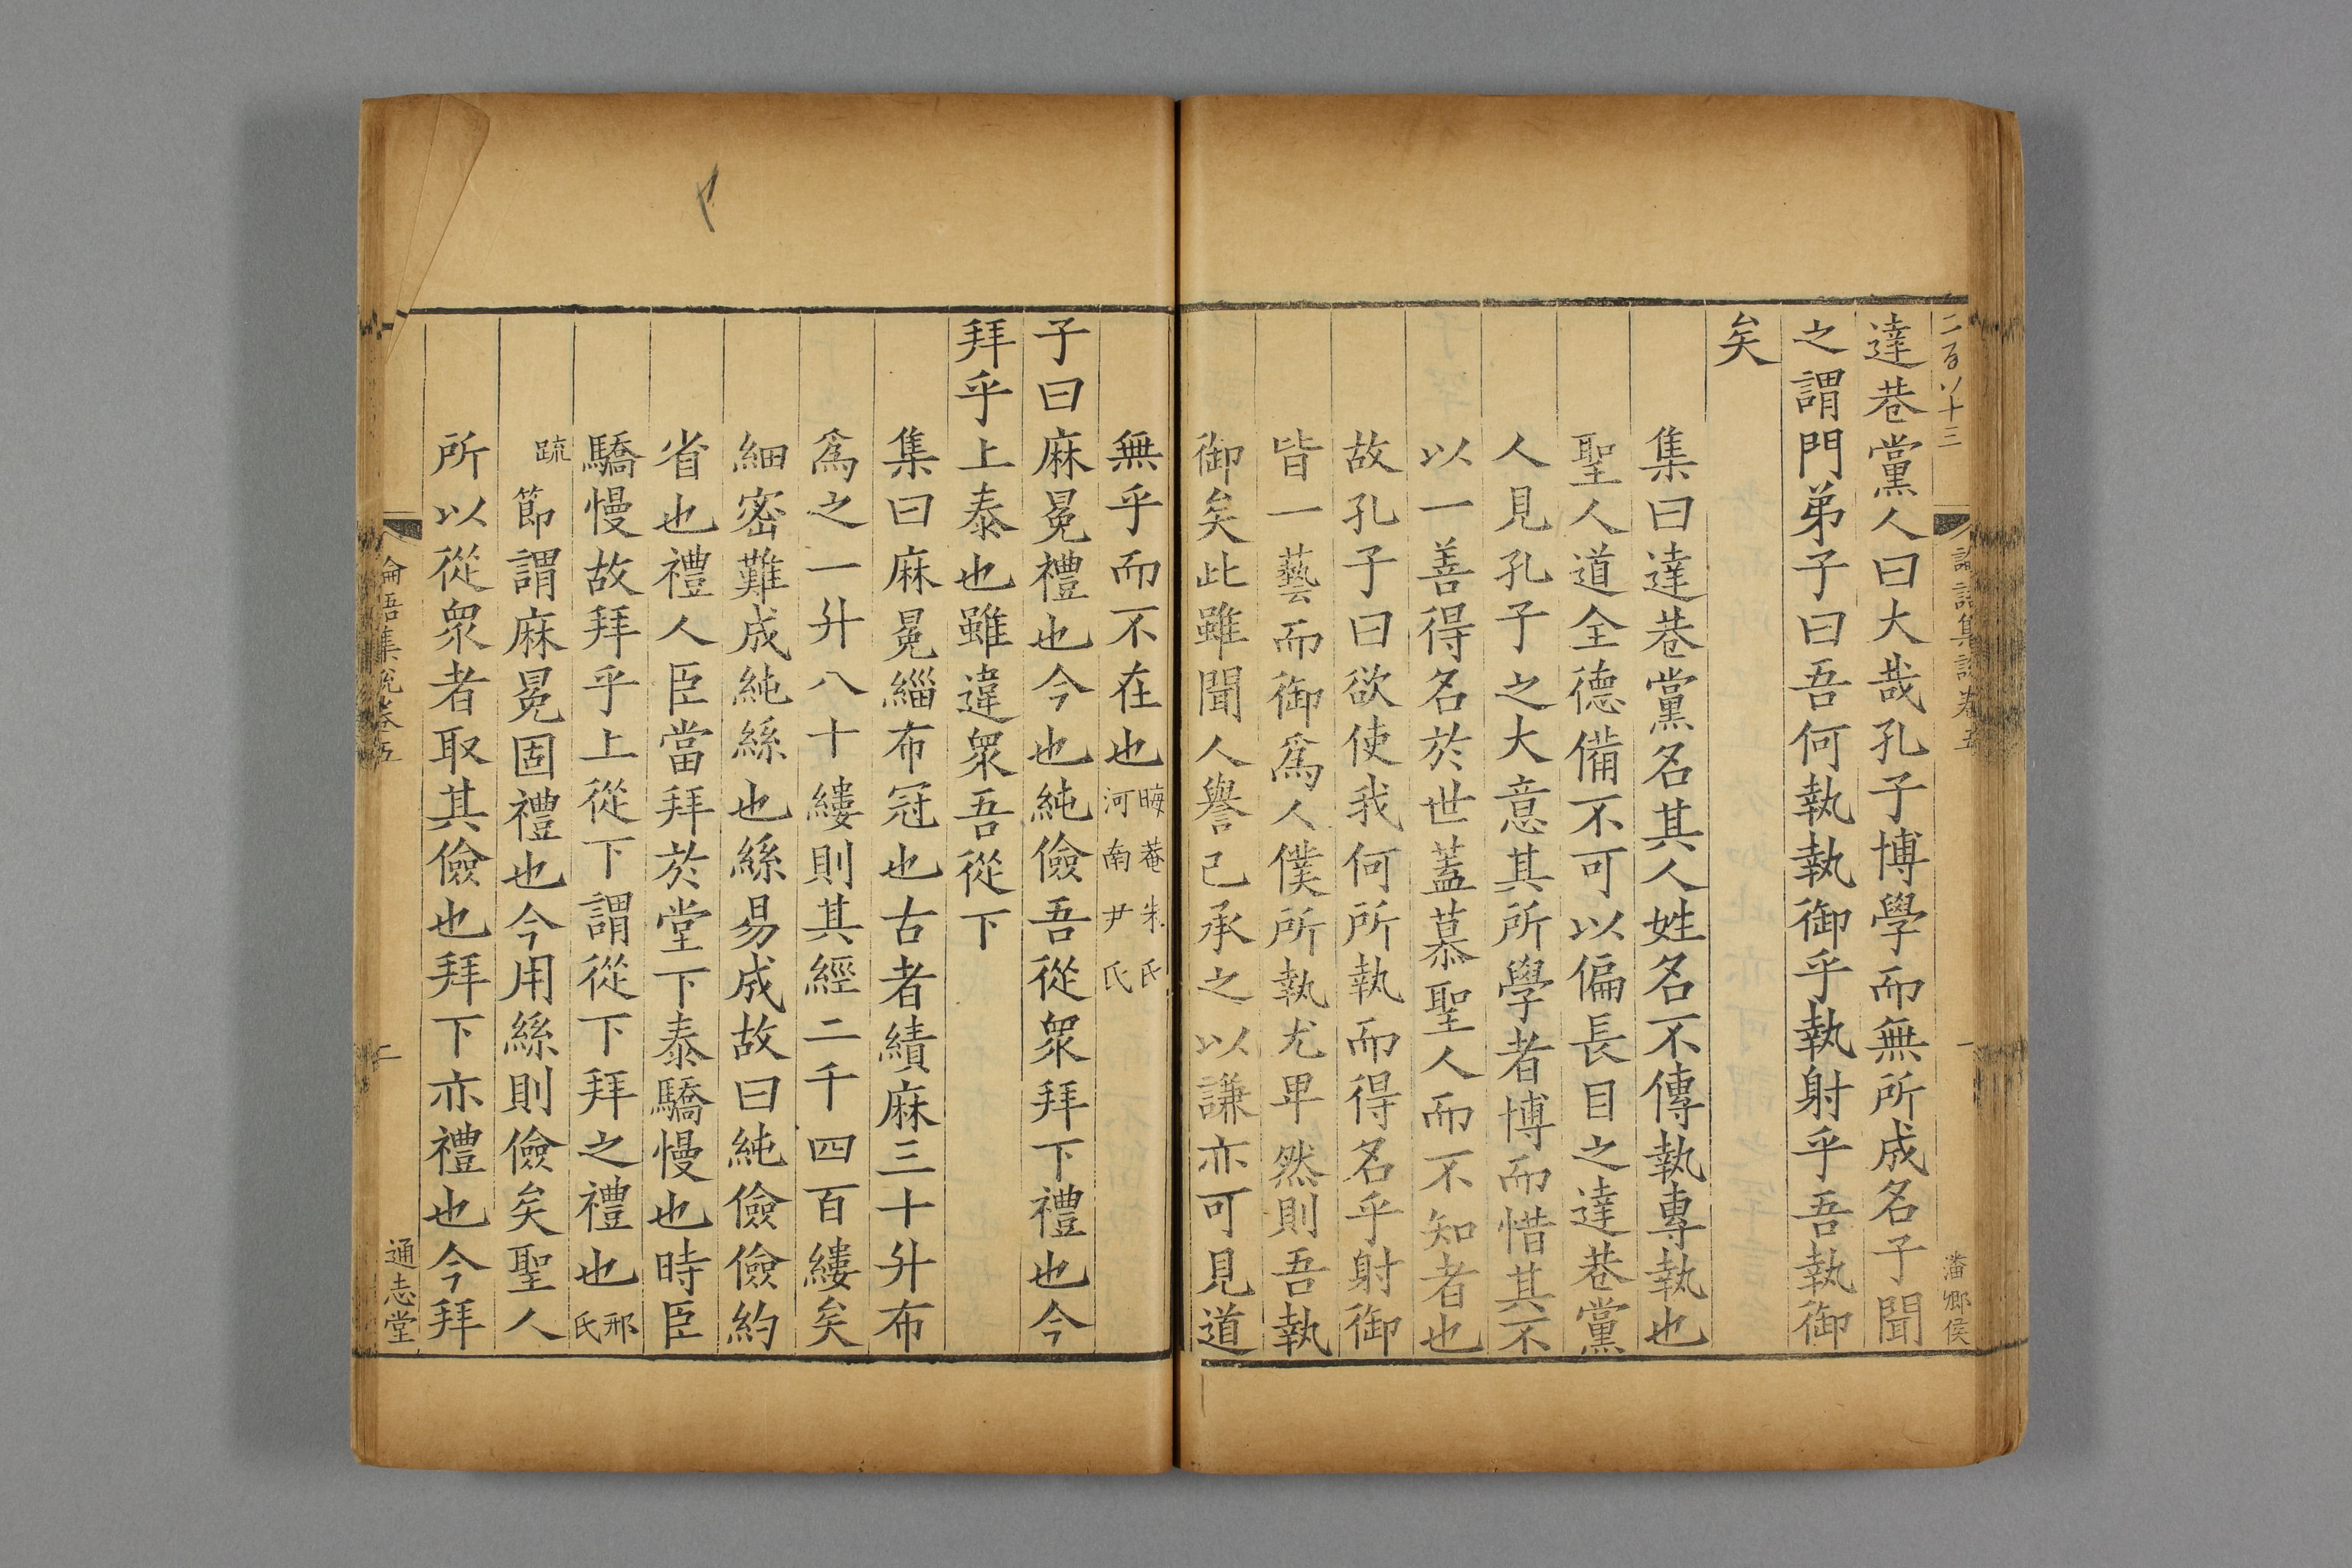 二百八十三
論語集說卷五
一
潘卿侯
達巷黨人曰大哉孔子博學而無所成名子聞
之謂門弟子曰吾何執執御乎執射乎吾執御
矣
集曰達巷黨名其人姓名不傳執專執也
聖人道全德備不可以偏長目之達巷黨
人見孔子之大意其所學者博而惜其不
以一善得名於世蓋慕聖人而不知者也
故孔子曰欲使我何所執而得名乎射御
皆一藝而御爲人僕所執尤卑然則吾執
御矣此雖聞人譽己承之以謙亦可見道
無乎而不在也晦菴朱氏
河南尹氏
子曰麻冕禮也今也純儉吾從衆拜下禮也今
拜乎上泰也雖違衆吾從下
集曰麻冕緇布冠也古者績麻三十升布
爲之一升八十縷則其經二千四百縷矣
細密難成純絲也絲易成故曰純儉儉約
省也禮人臣當拜於堂下泰驕慢也時臣
驕慢故拜乎上從下謂從下拜之禮也邢氏
疏
節謂麻冕固禮也今用絲則儉矣聖人
所以從衆者取其儉也拜下亦禮也今拜
論語集說卷五
二
通志堂